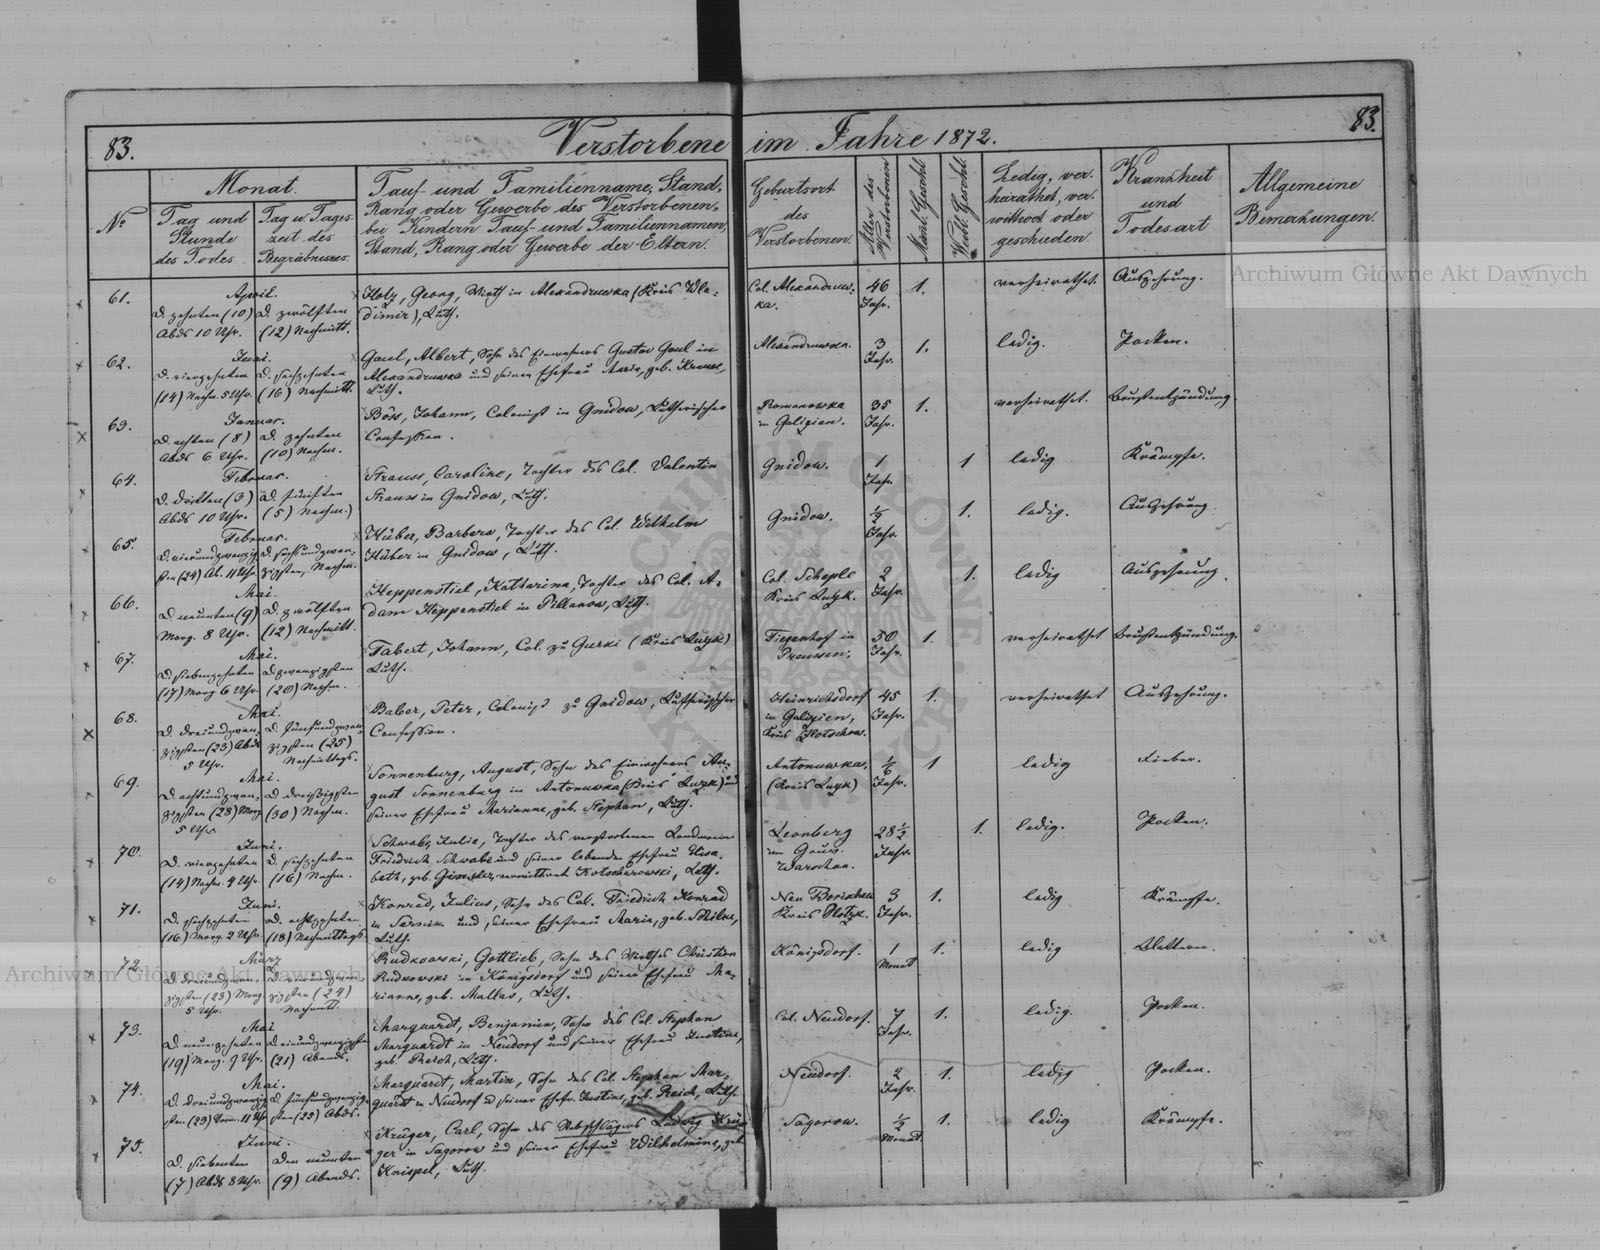 83.
Verstorbene im Jahre 1872.
83.
No
Monat.
Tag und Stunde des Todes.
Tag u. Tages-zeit des Begräbnisses.
Tauf- und Familienname, Stand,
Rang oder Gewerbe des Verstorbenen,
bei Kindern Tauf- und Familiennamen,
Stand, Rang oder Gewerbe der Eltern.
Geburtsort des Verstorbenen.
Alter des Verstorbenen
Männl. Geschl.
Weibl. Geschl.
Ledig, ver-
heirathet, ver-
wittwet oder
geschieden
Krankheit
und
Todesart
Allgemeine
Bemerkungen.
61.
April.
D. zehnten (10) Abds 10 Uhr.
D. zwölften (12) Nachmitt.
Holz, Georg, Wirth in Alexandruwka (Kreis Wla-
dimir), Luth.
Col. Alexandruw-
ka.
46 Jahr.
1.
verheirathet.
Auszehrung.
62.
Juni.
D. vierzehnten (14) Nachm. 5 Uhr.
D. sechzehnten (16) Nachmitt.
Gaul, Albert, Sohn des Einwohners Gustav Gaul in
Alexandruwka und seiner Ehefrau Maria, geb. Krause,
Luth.
Alexandruwka.
3 Jahr.
1.
ledig.
Pocken.
63.
Januar.
D. achten (8) Abds 6 Uhr.
D. zehnten (10) Nachm.
Böss, Johann, Colonist in Gnidow, Lutherischer
Confession.
Romanowka
in Galizien.
35 Jahr.
1.
verheirathet.
Brustentzündung
64.
Februar.
D. dritten (3) Abds 10 Uhr.
D. fünften (5) Nachm.)
Strauss, Caroline, Tochter des Col. Valentin
Strauss in Gnidow, Luth.
Gnidow.
1 Jahr.
1
ledig
Krämpfe.
65.
Februar.
D. vierundzwanzig-
sten (24) Ab. 11 Uhr.
D. sechsundzwan-
zigsten, Nachm.
Hüber, Barbara, Tochter des Col. Wilhelm
Hüber in Gnidow, Luth.
Gnidow.
½ Jahr.
1.
ledig.
Auszehrung
66.
Mai.
D. neunten (9) Morg. 8 Uhr.
D. zwölften (12) Nachmitt.
Heppenstiel, Katharina, Tochter des Col. A-
dam Heppenstiel in Pillanow, Luth.
Col. Scheple
Kreis Luzk.
2 Jahr.
1.
ledig
Auszehrung.
67.
Mai.
D. siebenzehnten (17) Morg. 6 Uhr.
D. zwanzigsten (20) Nachm.
Tabert, Johann, Col. zu Gurki (Kreis Luzk)
Luth.
Tiegenhof in
Preussen.
50 Jahr.
1.
verheirathet
Brustentzündung.
68.
Mai.
D. dreiundzwan-
zigsten (23) Abds
5 Uhr.
D. fünfundzwan-
zigsten (25)
Nachmittags.
Balser, Peter, Colonist zu Gnidow, Lutherischer
Confession.
Heinrichsdorf
in Galizien,
Kreis Zlotschow.
45 Jahr.
1.
verheirathet
Auszehrung.
69.
Mai.
D. achtundzwan-
zigsten (28) Morg.
5 Uhr
D. dreißigsten (30) Nachm.
Sonnenburg, August, Sohn des Einwohners Au-
gust Sonnenburg in Antonuwka (Kreis Luzk) und
seiner Ehefrau Marianne, geb. Stephan, Luth.
Antonuwka.
(Kreis Luzk)
⅙ Jahr.
1
ledig
Fieber.
70.
Juni.
D. vierzehnten (14) Nachm. 4 Uhr.
D. sechzehnten (16) Nachm.
Schwabe, Julie, Tochter des verstorbenen Landmann
Friedrich Schwabe und seiner lebenden Ehefrau Elisa-
beth, geb. verwittwet Kotscharowski, Luth.
Leonberg
im Gouv.
Warschau.
28½ Jahr.
1.
ledig.
Pocken.
71.
Juni.
D. sechzehnten (16) Morg. 2 Uhr
D. achtzehnten (18) Nachmittags.
Konrad, Julius, Sohn des Col. Friedrich Konrad
in Sarnik und seiner Ehefrau Maria, geb. Milke,
Luth.
Neu
Kreis Plotzk.
3 Jahr.
1.
ledig
Krämpfe.
72.
März
D. dreiundzwan-
zigsten (23) Morg.
5 Uhr.
D. vierundzwan-
zigsten (24)
Nachmitt.
Rudkowski, Gottlieb, Sohn des Wirthes Christian
Rudkowski in Königsdorf und seiner Ehefrau Ma-
rianne, geb. Mallas, Luth.
Königsdorf.
1 Monat
1.
ledig
Blattern.
73.
Mai
D. neunzehnten (19) Morg. 9 Uhr.
D. einundzwanzigsten (21) Abends.
Marquardt, Benjamin, Sohn des Col. Stephan
Marquardt in Neudorf und seiner Ehefrau Justine,
geb. Reich, Luth.
Col. Neudorf.
7 Jahr.
1.
ledig.
Pocken.
74.
Mai.
D. dreiundzwanzig-
sten (23) Vorm. 11 Uhr
D. fünfundzwanzig-
sten (25) Abds.
Marquardt, Martin, Sohn des Col. Stephan Mar-
quardt in Neudorf u seiner Ehefr. Justine, geb. Reich, Luth.
Neudorf.
2 Jahr.
1.
ledig
Pocken.
75.
Juni.
D. siebenten (7) Abds 8 Uhr.
Den neunten (9) Abends.
Krüger, Carl, Sohn des Stabschlägers Ludwig Krü-
ger in Sagorow und seiner Ehefrau Wilhelmine, geb.
Knispel, Luth.
Sagorow.
½ Monat.
1.
ledig
Krämpfe.
Archiwum Główne Akt Dawnych
Archiwum Główne Akt Dawnych